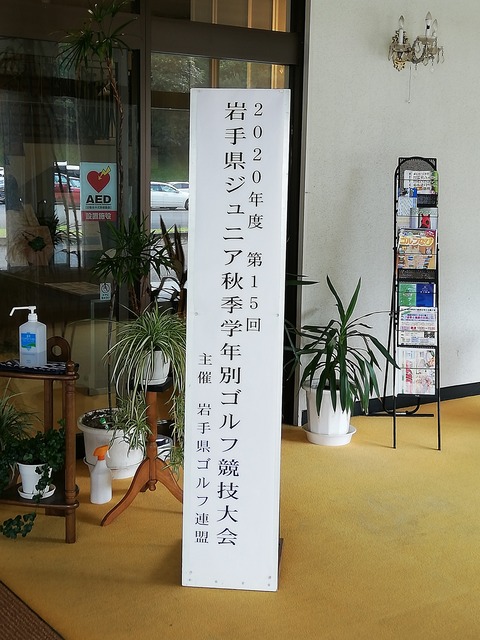 2020年度 第15回
岩手県ジュニア秋季学年別ゴルフ競技大会
主催 岩手県ゴルフ連盟
AED
設置施設